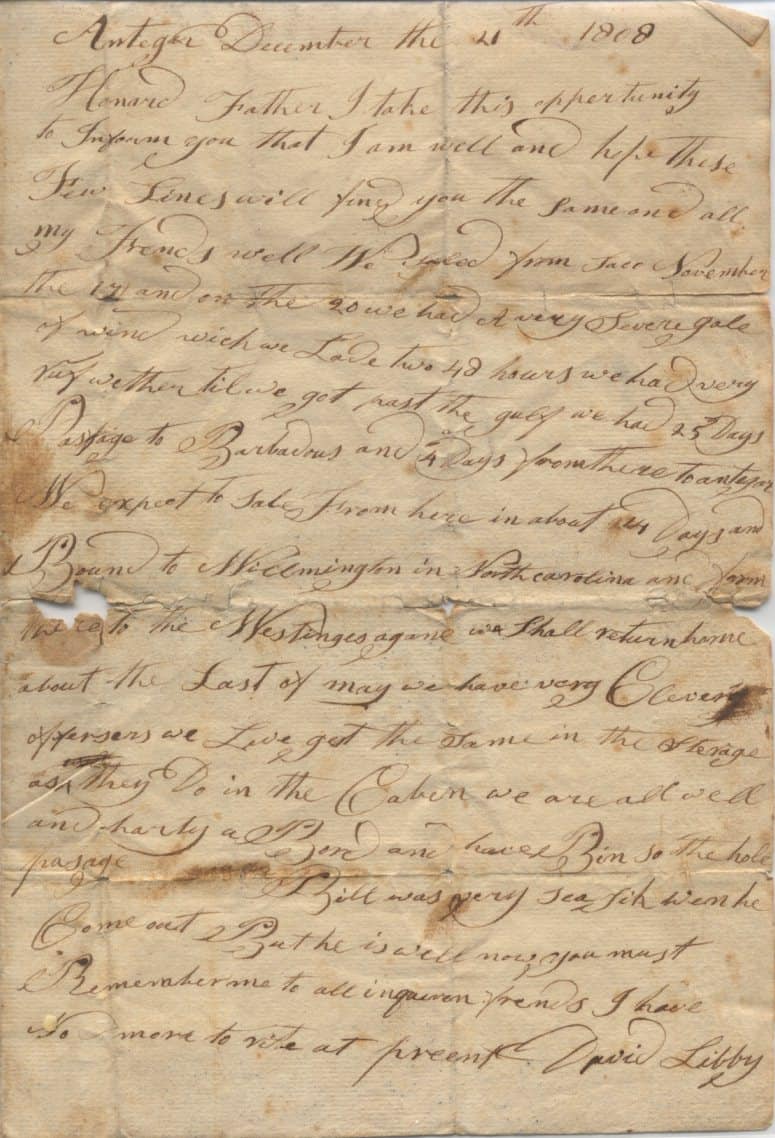 Antegar December the 21th 1808
Honard Father I take this oppertunity
to Inform you that I am well and hope these
Few Lines will find you the Same and all
my Frends well We Saled from Saco November
the 17 and on the 20 we had A very Severe gale
of wind wich we Lade two 48 hours we had very
ruf wether til we got past the gulf we had 25 Days
Passige to Barbadous and 4 Days from there to antegar
We expect to Sale From here in about 14 Days and
Bound to Willmington in North carolina and form
there to the Westinges agane we Shall return home
about the Last of may we have very Clever
offersers we Live gest the Same in the Sterage
as they Do in the Caben we are all well
and harty a Bord and have Bin so the hole
pasage Bill was very Sea Sik wen he
Come out But he is well now you must
Remember me to all inquiren frends I have
No more to rite at preent David Libby